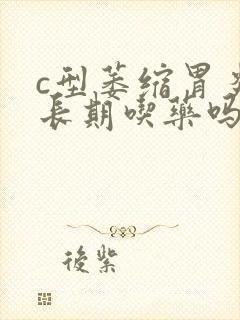 c型萎缩胃炎
长期喫藥吗
後紫